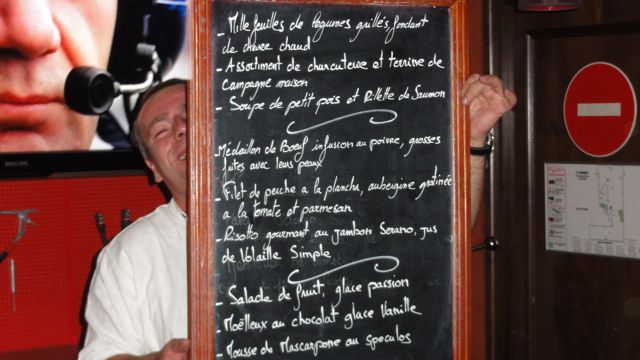 PHILIPS
- Mille feuilles de légumes grillés, fondant
de chèvre chaud
- Assortiment de charcuterie et terrine de
Campagne maison
- Soupe de petit pois et Rillette de Saumon
- Médaillon de Boeuf infusion au poivre, grosses
frites avec leurs peaux
- Filet de perche a la plancha, aubergine gratinée
a la tomate et parmesan
- Risotto gourmant au Jambon Serano, jus
de Volaille Simple
- Salade de fruit, glace passion
- Moëlleux au chocolat glace Vanille
- Mousse de Mascarpone au speculos